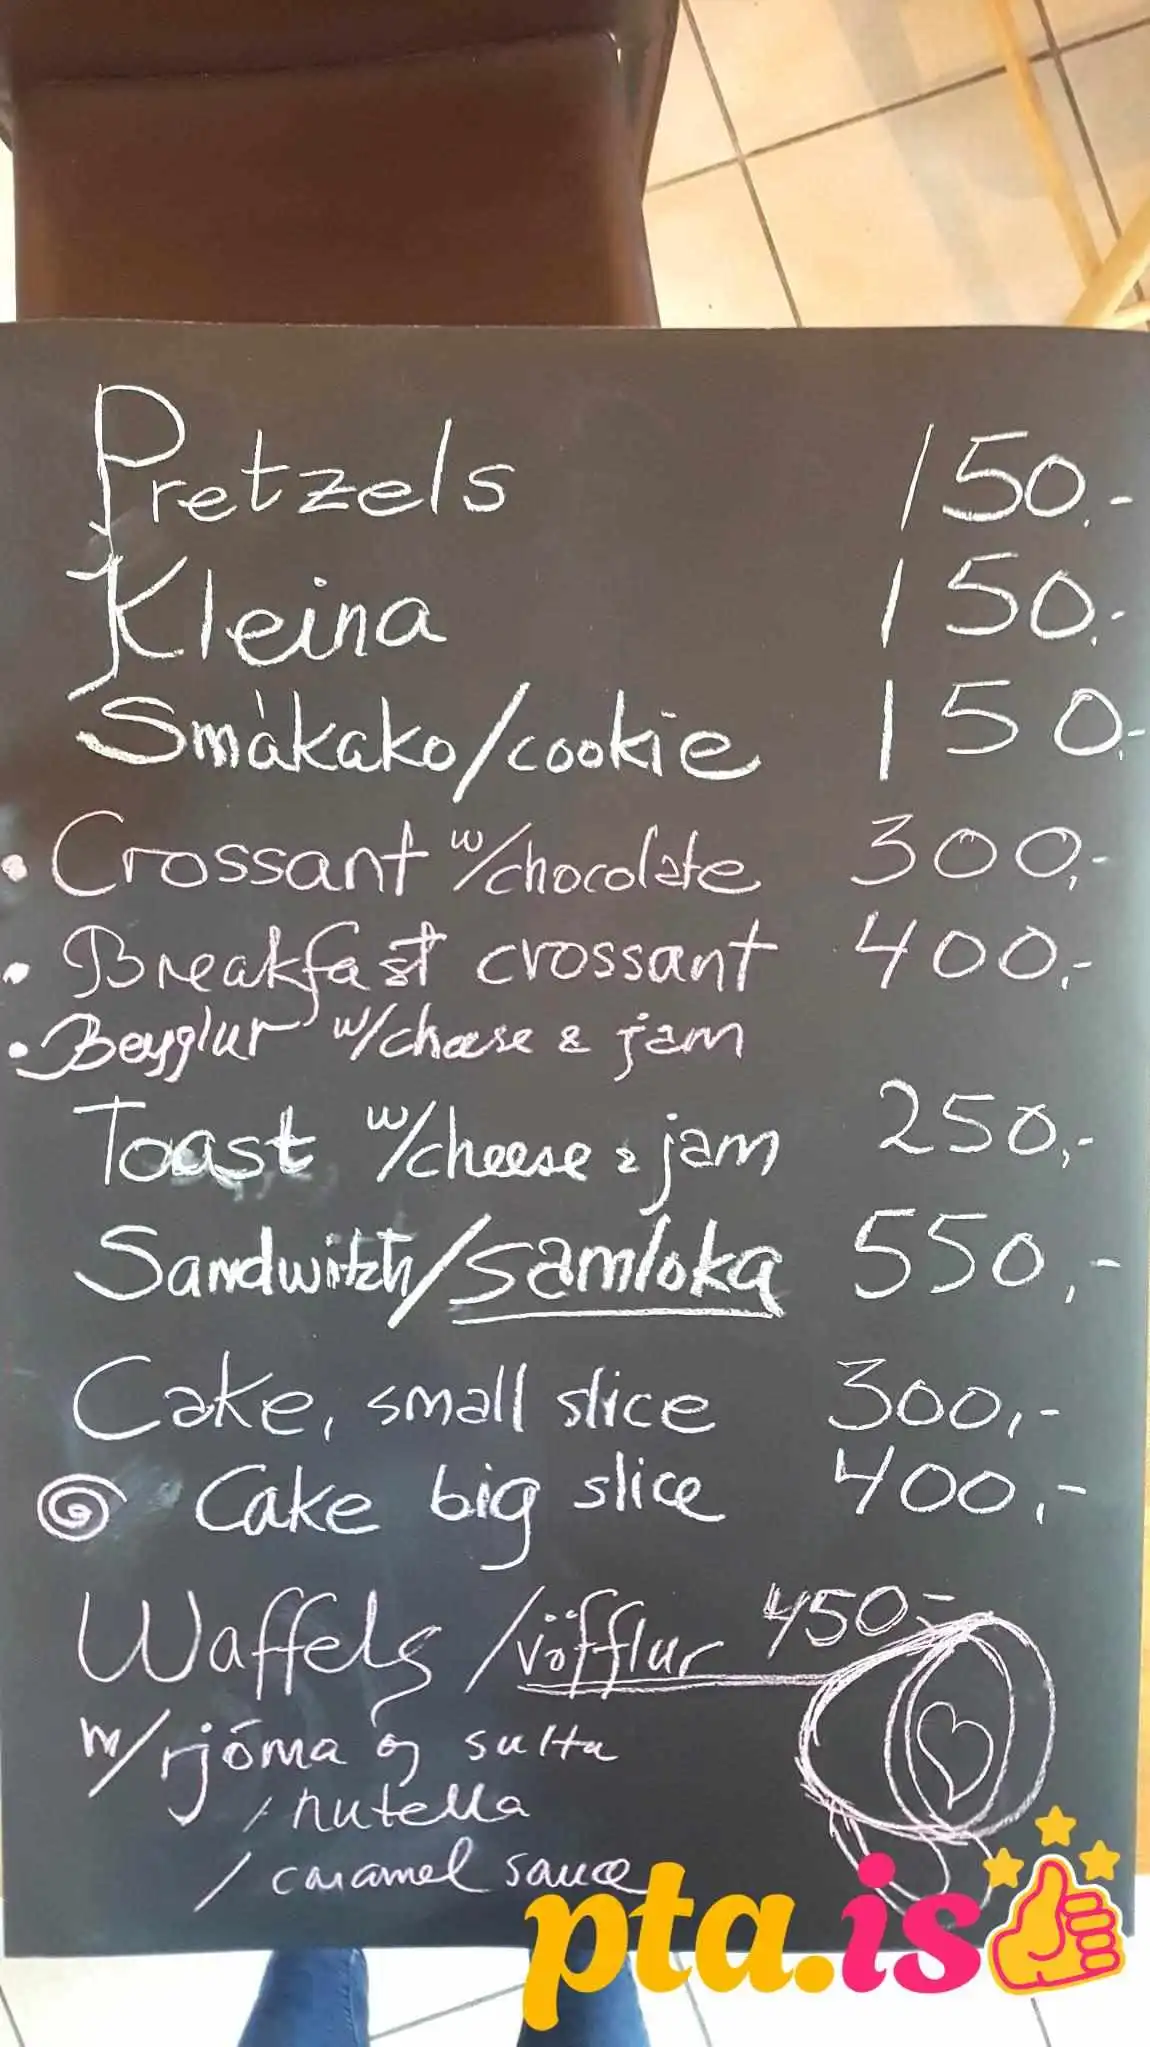 Pretzels 150.-
Kleina 150.-
Smàkako/cookie 150.-
• Crossant w/chocolate 300,-
• Breakfast crossant 400,-
• Beyglur w/cheese & jam
Toast w/cheese & jam 250,-
Sandwitch/samloka 550,-
Cake, small slice 300,-
Cake big slice 400,-
Waffels /vöfflur 450-
m/rjóma og sulta
/ nutella
/ caramel sauce
pta.is